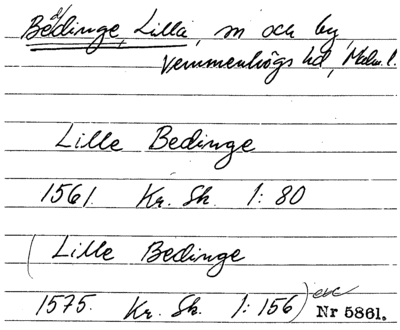 Beddinge, Lilla, sn och by,
Vemmenhögs hd, Malm. l.
Lille Bedinge
1561. Kr. Sk. 1: 80
(Lille Bedinge
1575. Kr. Sk. 1: 156)
Nr 5861.